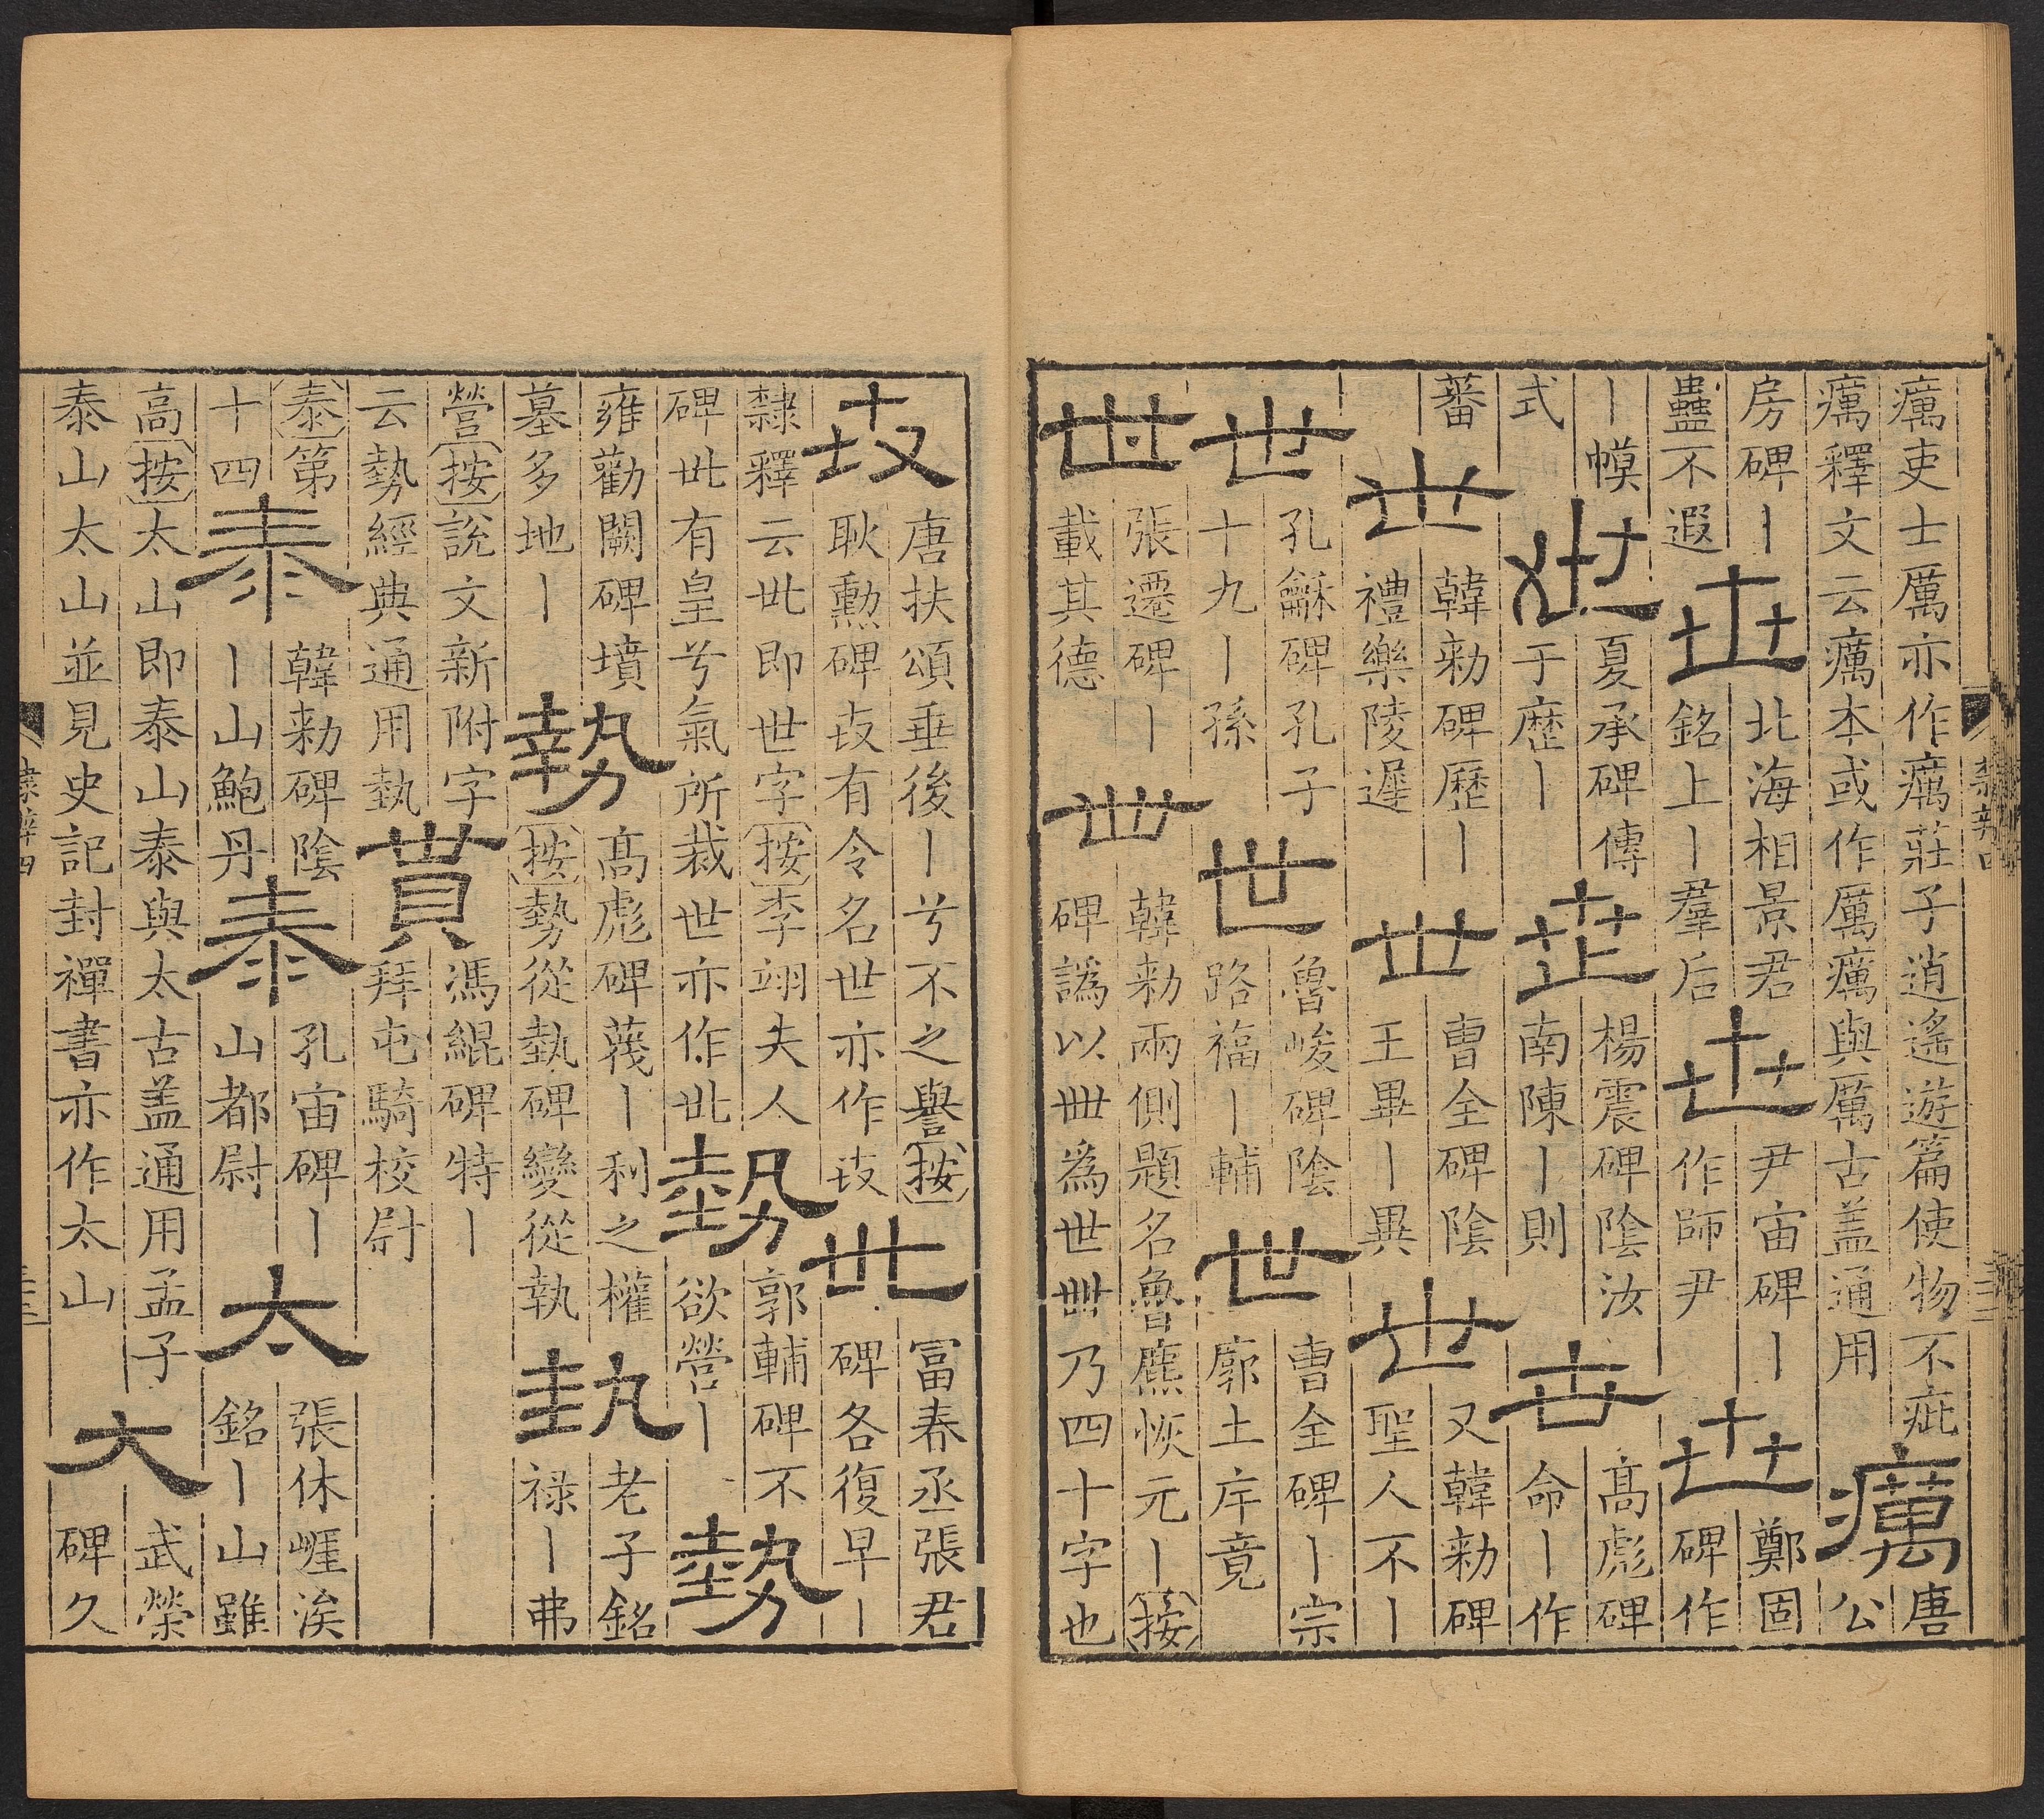 癘吏士厲亦作癘莊子逍遙遊篇使物不疵
癘釋文云癘本或作厲癘與厲古盖通用
癘
唐
公
房碑丨
蠱不遐
世
北海相景君
銘上丨羣后
世
尹宙碑丨
作師尹
世
鄭固
碑作
丨幙
式
世
夏承碑傳
于歷丨
世
楊震碑陰汝
南陳丨則
世
高彪碑
命丨作
蕃
世
韓勑碑歷丨
禮樂陵遲
世
曹全碑陰
王畢丨異
世
又韓勑碑
聖人不丨
世
孔龢碑孔子
十九丨孫
世
魯峻碑陰
路福丨輔
世
曹全碑丨宗
廓土庠竟
世
張遷碑丨
載其德
世
韓勑兩側題名魯恢元丨按
碑譌以卌為世卌乃四十字也
隸辨四
世
唐扶頌垂後丨兮不之譽按
耿勳碑有令名世亦作
世
富春丞張君
碑各復早丨
隸釋云丗即世字按李翊夫人
碑丗有皇兮氣所裁世亦作丗
勢
郭輔碑不
欲營丨
勢
雍勸闕碑墳
墓多地丨
勢
高彪碑蔑丨利之權
按勢從埶碑變從執
埶
老子銘
祿丨弗
營按說文新附字
云勢經典通用埶
貰
馮緄碑特丨
拜屯騎校尉
泰第
十四
泰
韓勑碑陰
丨山鮑丹
泰
孔宙碑丨
山都尉
太
張休崕涘
銘丨山雖
高按太山即泰山泰與太古盖通用孟子
泰山太山並見史記封禪書亦作太山
大
武榮
碑久
隸辨四